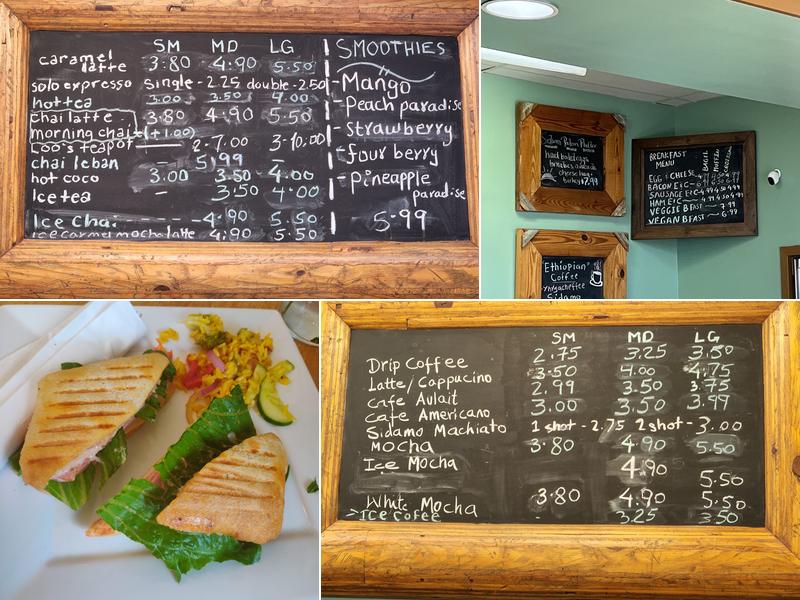 SM MD LG
caramel latte 3.80 4.90 5.50
solo expresso single - 2.25 double - 2.50
hot tea 3.00 3.50 4.00
chai latte 3.80 4.90 5.50
morning chai (+1.00)
Loo's teapot 2-7.00 3-10.00
chai leban - 5.99 -
hot coco 3.00 3.50 4.00
Ice tea 3.50 4.00
Ice chai -- -4.90 5.50
ice carmel mocha latte 4.90 5.50
SMOOTHIES
-Mango
-Peach paradise
- strawberry
- four berry
- pineapple
paradise
5.99
hard boiled eggs
cheese ham
turkey 7.99
Ethiopian
Coffee
Yirgacheffee
Sidamo
BREAKFAST
MENU
BAGEL
MUFFIN
EGG & CHEESE
BACON E+C
SAUSAGE E+C
HAM E+C
VEGGIE BFAST 7.99
VEGAN BFAST 6.99
SM MD LG
Drip Coffee 2.75 3.25 3.50
Latte/Cappucino 3.50 4.00 4.75
Cafe Aulait 2.99 3.50 3.75
Cafe Americano 3.00 3.50 3.99
Sidamo Machiato 1 shot - 2.75 2 shot - 3.00
Mocha 3.80 4.90 5.50
Ice Mocha 4.90 5.50
White Mocha 3.80 4.90 5.50
Ice Cofee - 3.25 3.50